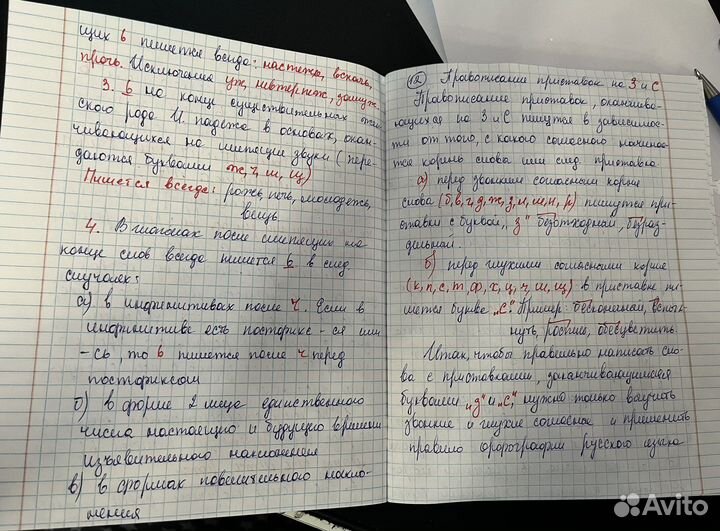 щих ь пишется всегда: настежь, вскачь,
прочь. Исключения уж, невтерпеж, замуж.
3. Ь на конце существительных жен-
ского рода И. падежа в основах, окан-
чивающихся на шипящие звуки (пере-
даются буквами ж, ч, ш, щ)
Пишется всегда: рожь, печь, молодежь,
вещь
4. В глаголах после шипящих на
конце слов всегда пишется ь в след.
случаях:
а) в инфинитивах после ч. Если в
инфинитиве есть постфикс -ся или
-сь, то ь пишется после ч перед
постфиксом
б) в форме 2 лица единственного
числа настоящего и будущего времени
изъявительного наклонения
в) в формах повелительного накло-
нения
12 Правописание приставок на З и С
Правописание приставок, оканчива-
ющихся на З и С пишутся в зависимос-
ти от того, с какого согласного начинае-
тся корень слова или след. приставка
а) перед звонкими согласными корня
слова (б, в, г, д, ж, з, л, м, н, р) пишутся при-
ставки с буквой „з" безотходный, безраз-
дельный.
б) перед глухими согласными корня
(к, п, с, т, ф, х, ц, ч, ш, щ) в приставке пи-
шется буква „С". Пример: бесконечный, вспых-
нуть, росшив, обесцветить.
Итак, чтобы правильно написать сло-
ва с приставками, заканчивающимися
буквами „з" и „с", нужно только выучить
звонкие и глухие согласные и применить
правило орфографии русского языка
Avito